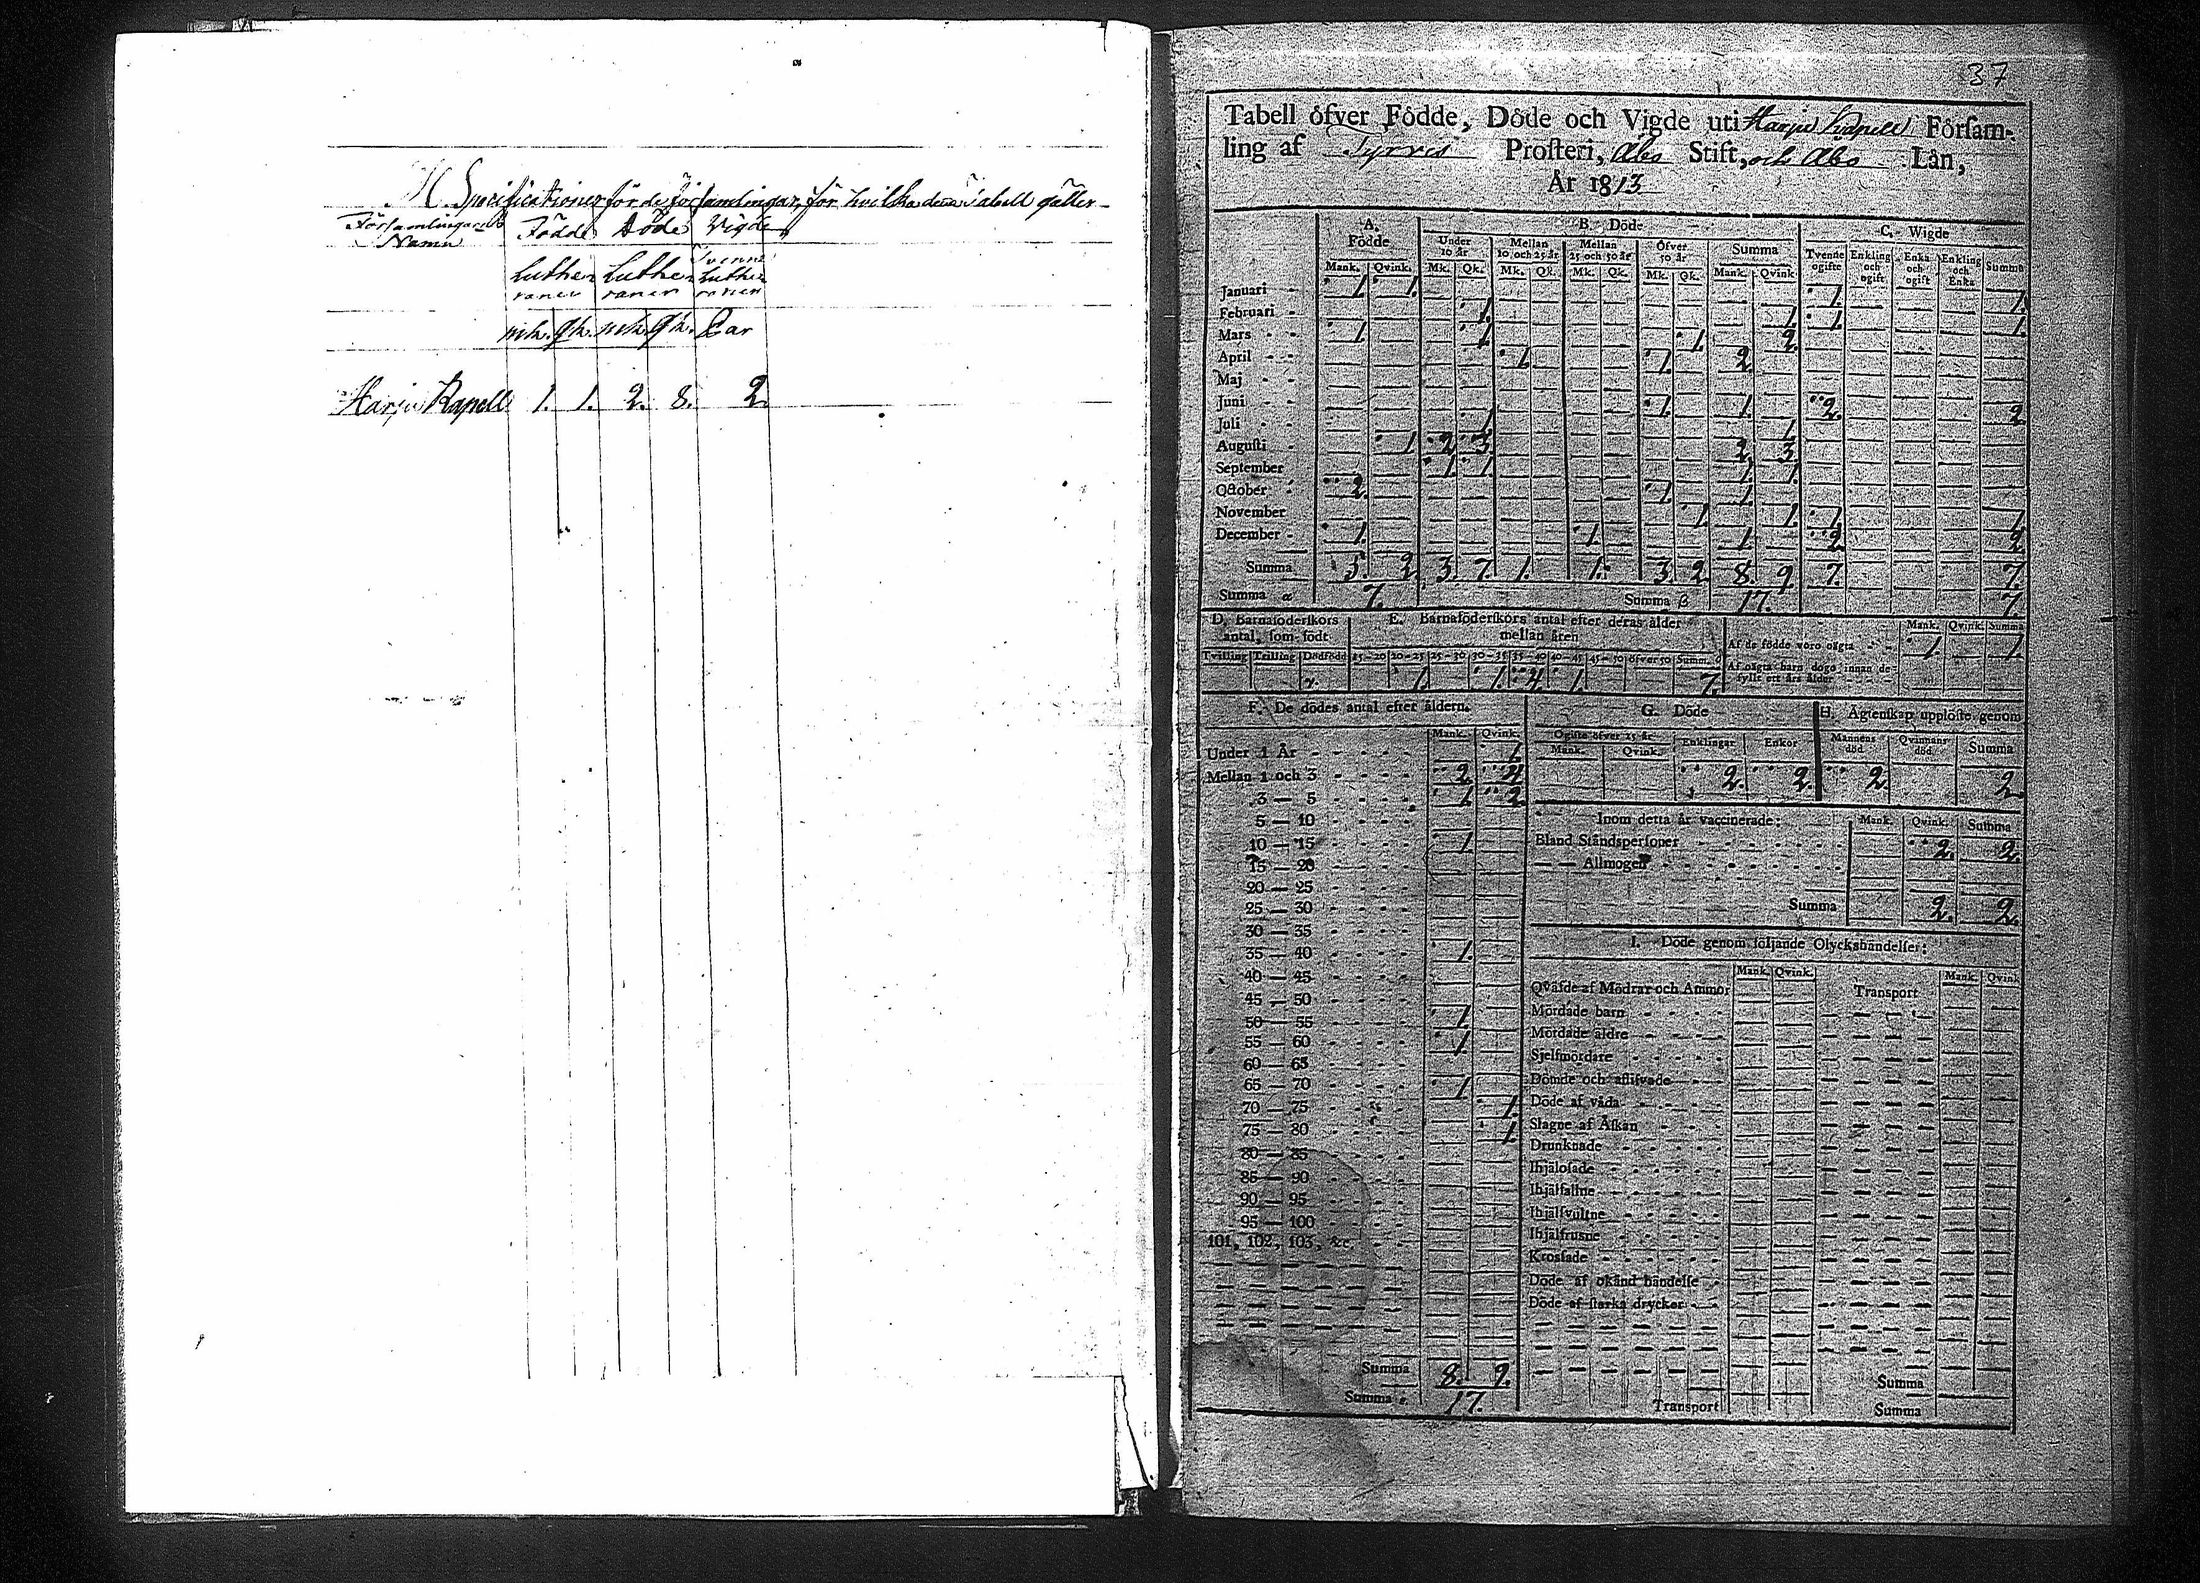 M. Specificationer för de församlingar, för hvilka denna Tabell gäller
Församlingarnas Namn Födde Döde Vigde
Lutheraner Lutheraner Lutheraner
mk. qk. mk. qk. Par
Harju Kapell 1. 1. 2. 8. 2.
37
Tabell öfver Födde, Döde och Vigde uti Harju Kapell Försam-
ling af Tyrvis Prosteri, Åbo Stift, och Åbo Län,
År 1813
A. Födde B. Döde C. Wigde
Under 10 år Mellan 10 och 25 år Mellan 25 och 50 år Öfver 50 år Summa Tvenne ogifte Enkling och ogift Enka och ogift Enkling och Enka Summa
Mank. Qvink. Mk. Qk. Mk. Qk. Mk. Qk. Mk. Qk. Mank. Qvink.
Januari 1. 1. 1. 1.
Februari 1. 1. 1. 1.
Mars 1. 1. 1. 2.
April 1. 1. 2.
Maj
Juni 1. 1. 2. 2.
Juli 1. 1.
Augusti 1. 2. 3. 2. 3.
September 1. 1. 1. 1.
October 2. 1. 1.
November 1. 1. 1. 1.
December 1. 1. 1. 2. 2.
Summa 5. 2. 3. 7. 1. 1. 3. 2. 8. 9. 7. 7.
Summa α 7. Summa β 17. 7.
D. Barnaföderskors antal, som födt
Tvilling Trilling Dödfödd
E. Barnaföderskors antal efter deras ålder mellan åren
15-20 20-25 25-30 30-35 35-40 40-45 45-50 öfver 50 Summ.
1. 1. 4. 1. 7.
Mank. Qvink. Summa
Af de födde voro oägta 1. 1.
Af oägta barn dogo innan de fyllt ett års ålder
F. De dödes antal efter åldern.
Mank. Qvink.
Under 1 År 1.
Mellan 1 och 3 2. 4.
3 — 5 1. 2.
5 — 10
10 — 15 1.
15 — 20
20 — 25
25 — 30
30 — 35
35 — 40 1.
40 — 45
45 — 50
50 — 55 1.
55 — 60 1.
60 — 65
65 — 70 1.
70 — 75 1.
75 — 80 1.
80 — 85
85 — 90
90 — 95
95 — 100
101, 102, 103, &c.
Summa 8. 9.
Summa 17.
G. Döde
Ogifte öfver 15 år Enklingar Enkor
Mank. Qvink.
2. 2.
H. Ägtenskap upplöste genom
Mannens död Qvinnans död Summa
2. 2.
Inom detta år vaccinerade: Mank. Qvink. Summa
Bland Ståndspersoner 2. 2.
— — Allmogen
Summa 2. 2.
I. Döde genom följande Olyckshändelser:
Mank. Qvink. Mank. Qvink
Qväfde af Mödrar och Ammor Transport
Mördade barn
Mördade äldre
Sjelfmördare
Dömde och aflifvade
Döde af våda
Slagne af Åskan
Drunknade
Ihjälosade
Ihjälfallne
Ihjälsvultne
Ihjälfrusne
Krossade
Döde af okänd händelse
Döde af starka drycker
Summa
Transport Summa